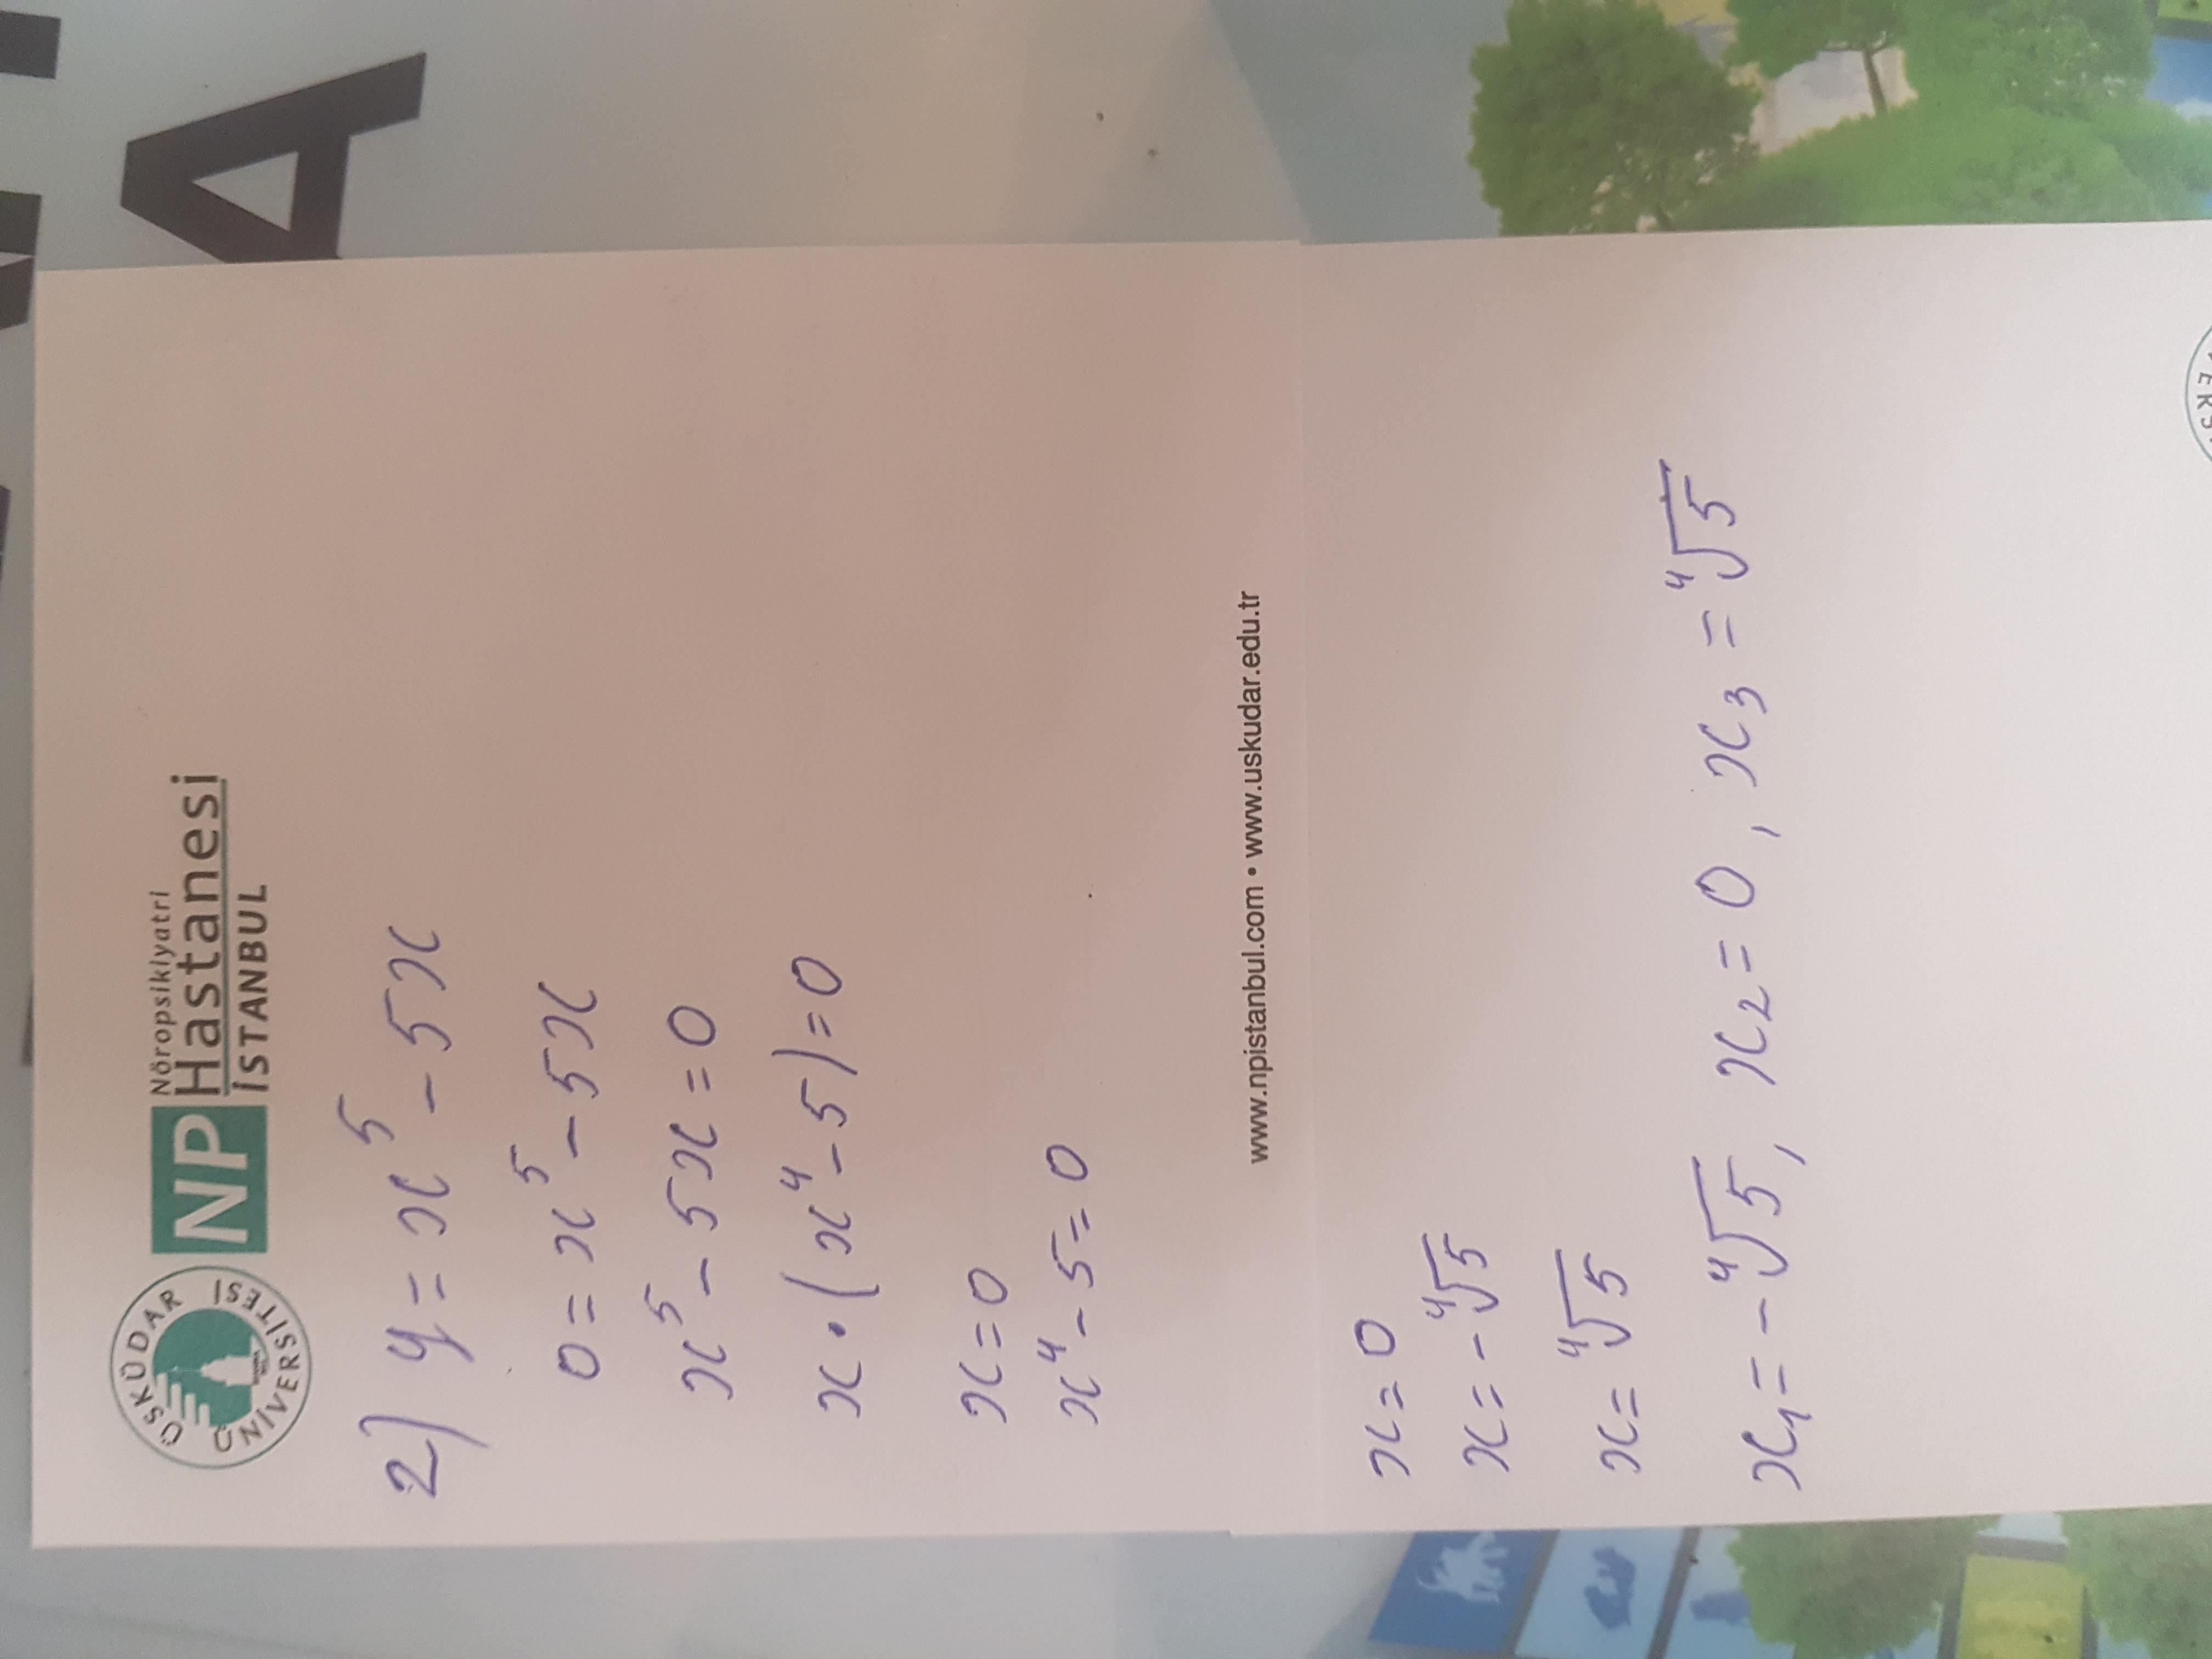 ÜSKÜDAR ÜNİVERSİTESİ
NP
Nöropsikiyatri
Hastanesi
İSTANBUL
2) y = x⁵ - 5x
0 = x⁵ - 5x
x⁵ - 5x = 0
x • (x⁴ - 5) = 0
x = 0
x⁴ - 5 = 0
www.npistanbul.com • www.uskudar.edu.tr
x = 0
x = -⁴√5
x = ⁴√5
x₁ = -⁴√5, x₂ = 0, x₃ = ⁴√5
A